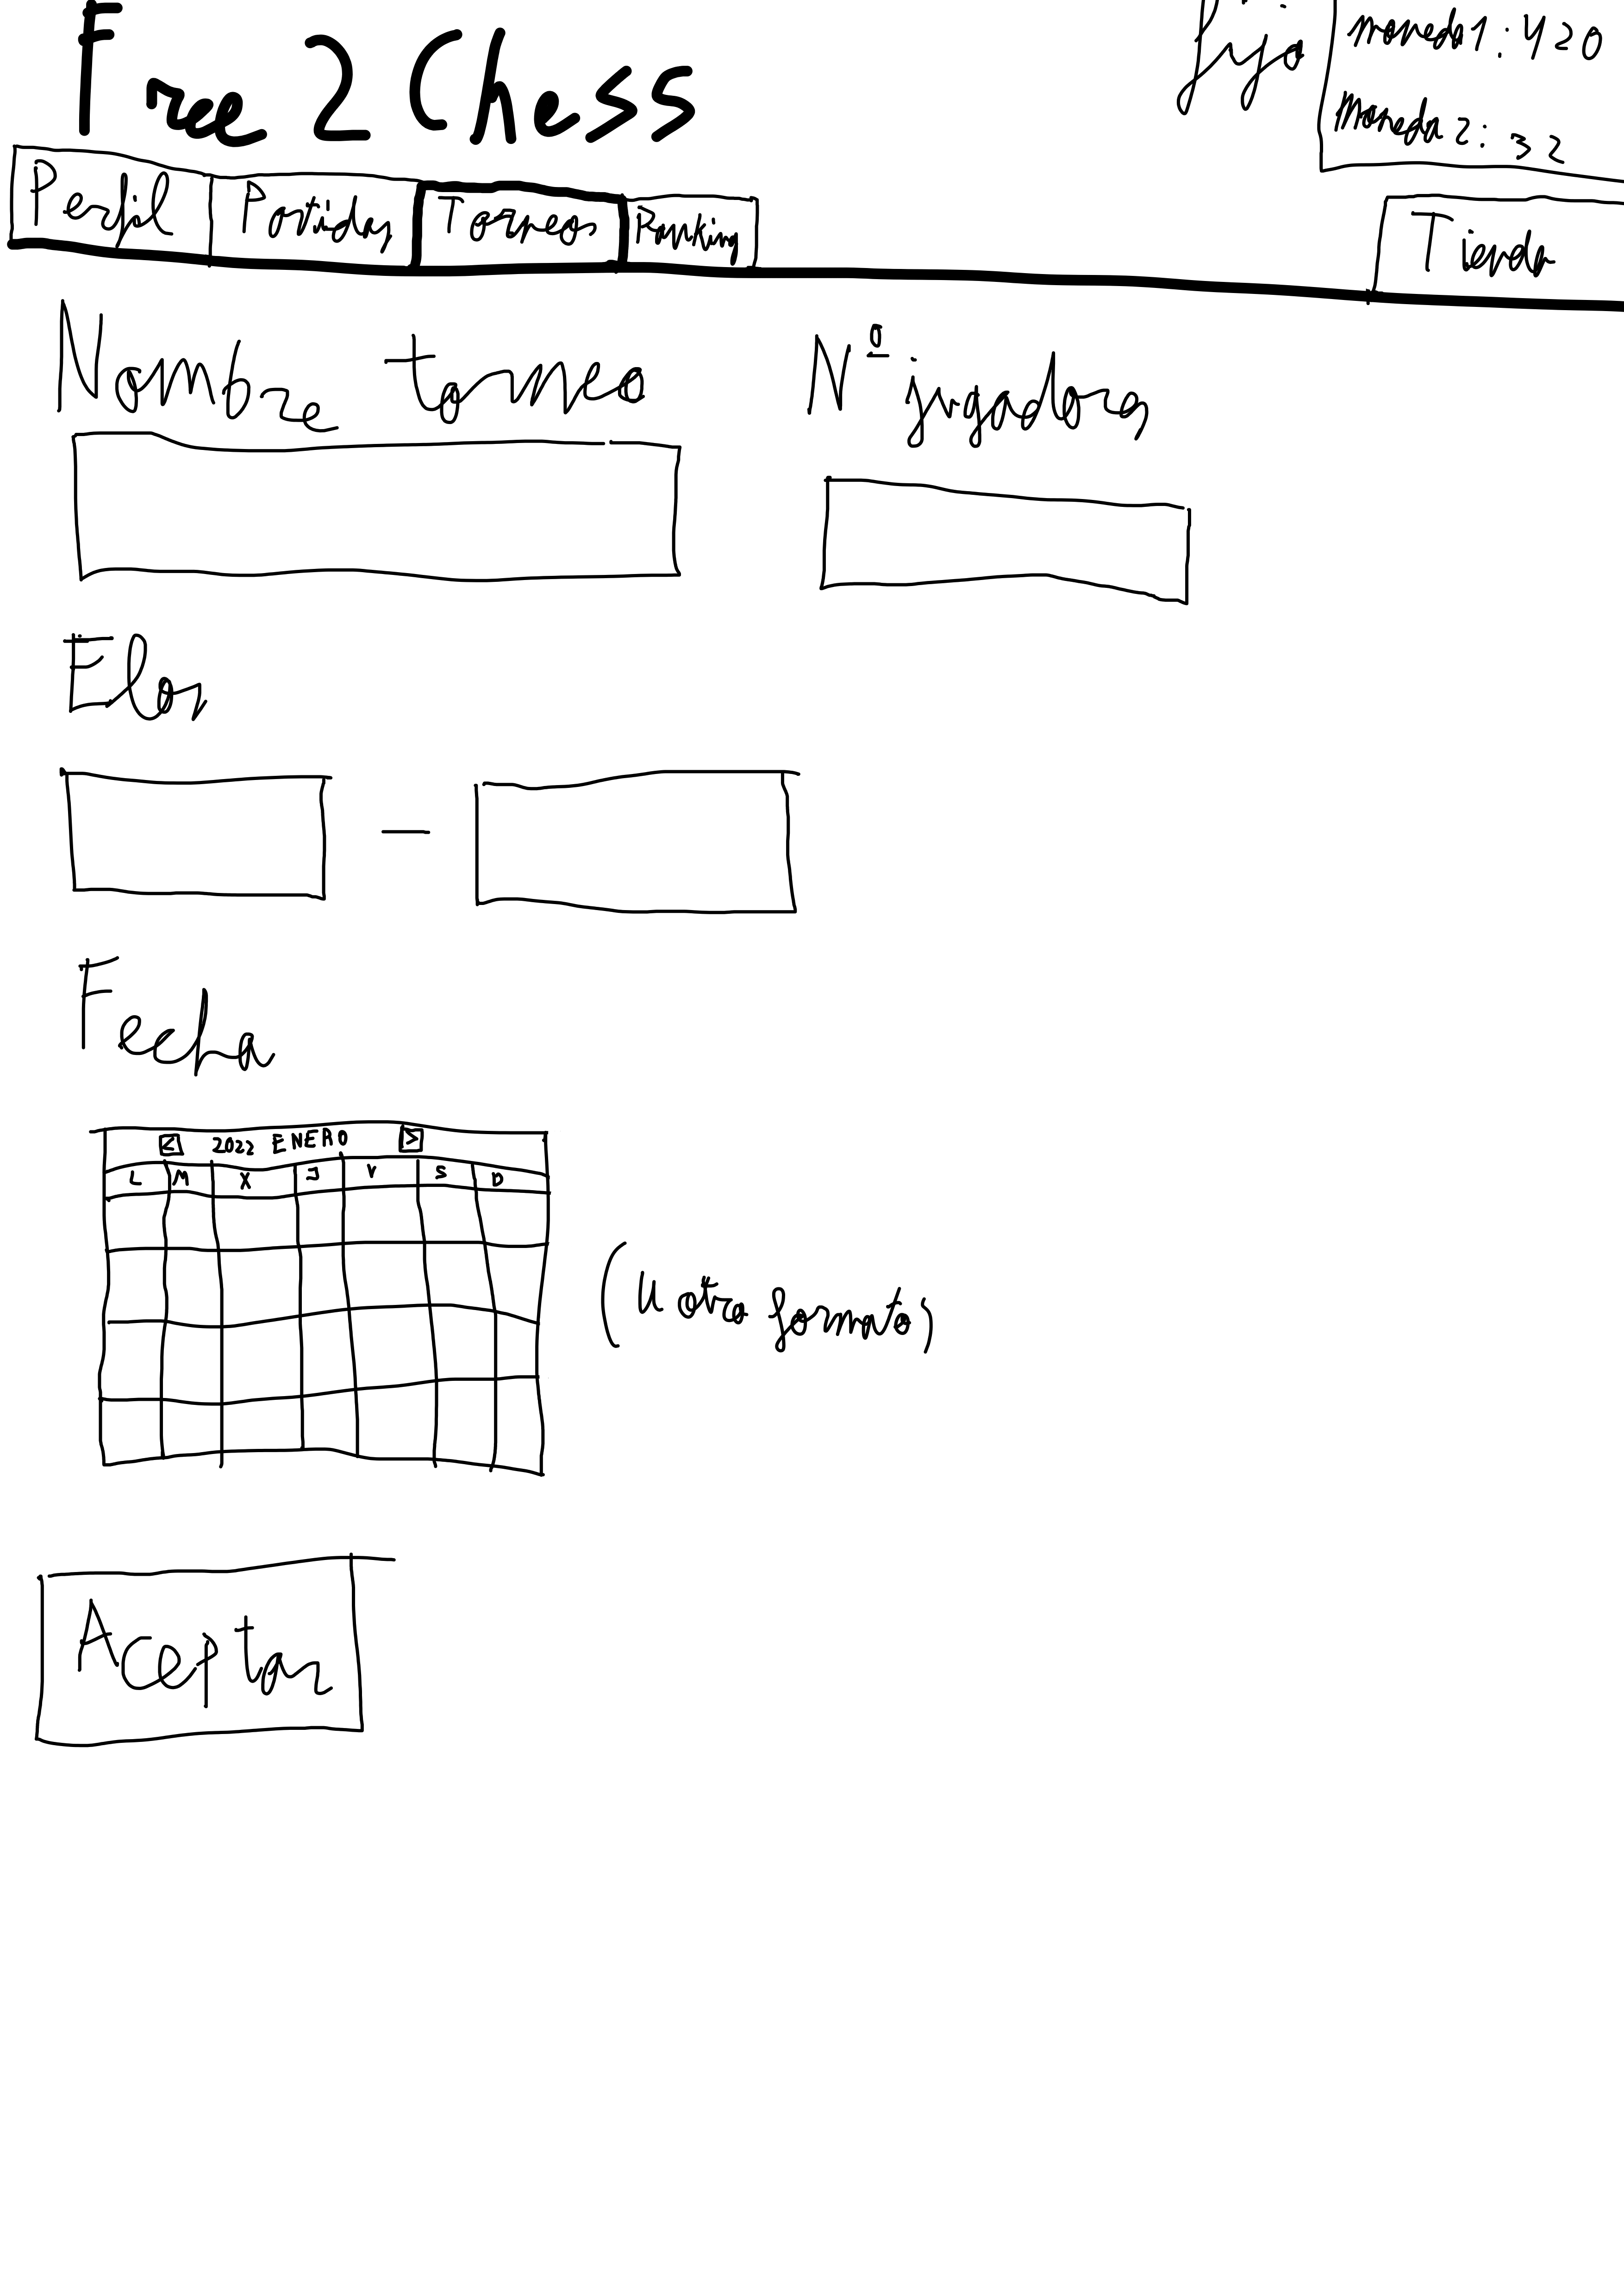 Free 2 Chess
fija
moneda1: 420
Moneda 2: 32
Perfil Partidas Torneos Ranking Tienda
Nombre torneo Nº jugadores
Elos
—
Fecha
< 2022 ENERO >
L M X J V S D
(u otro formato)
Aceptar